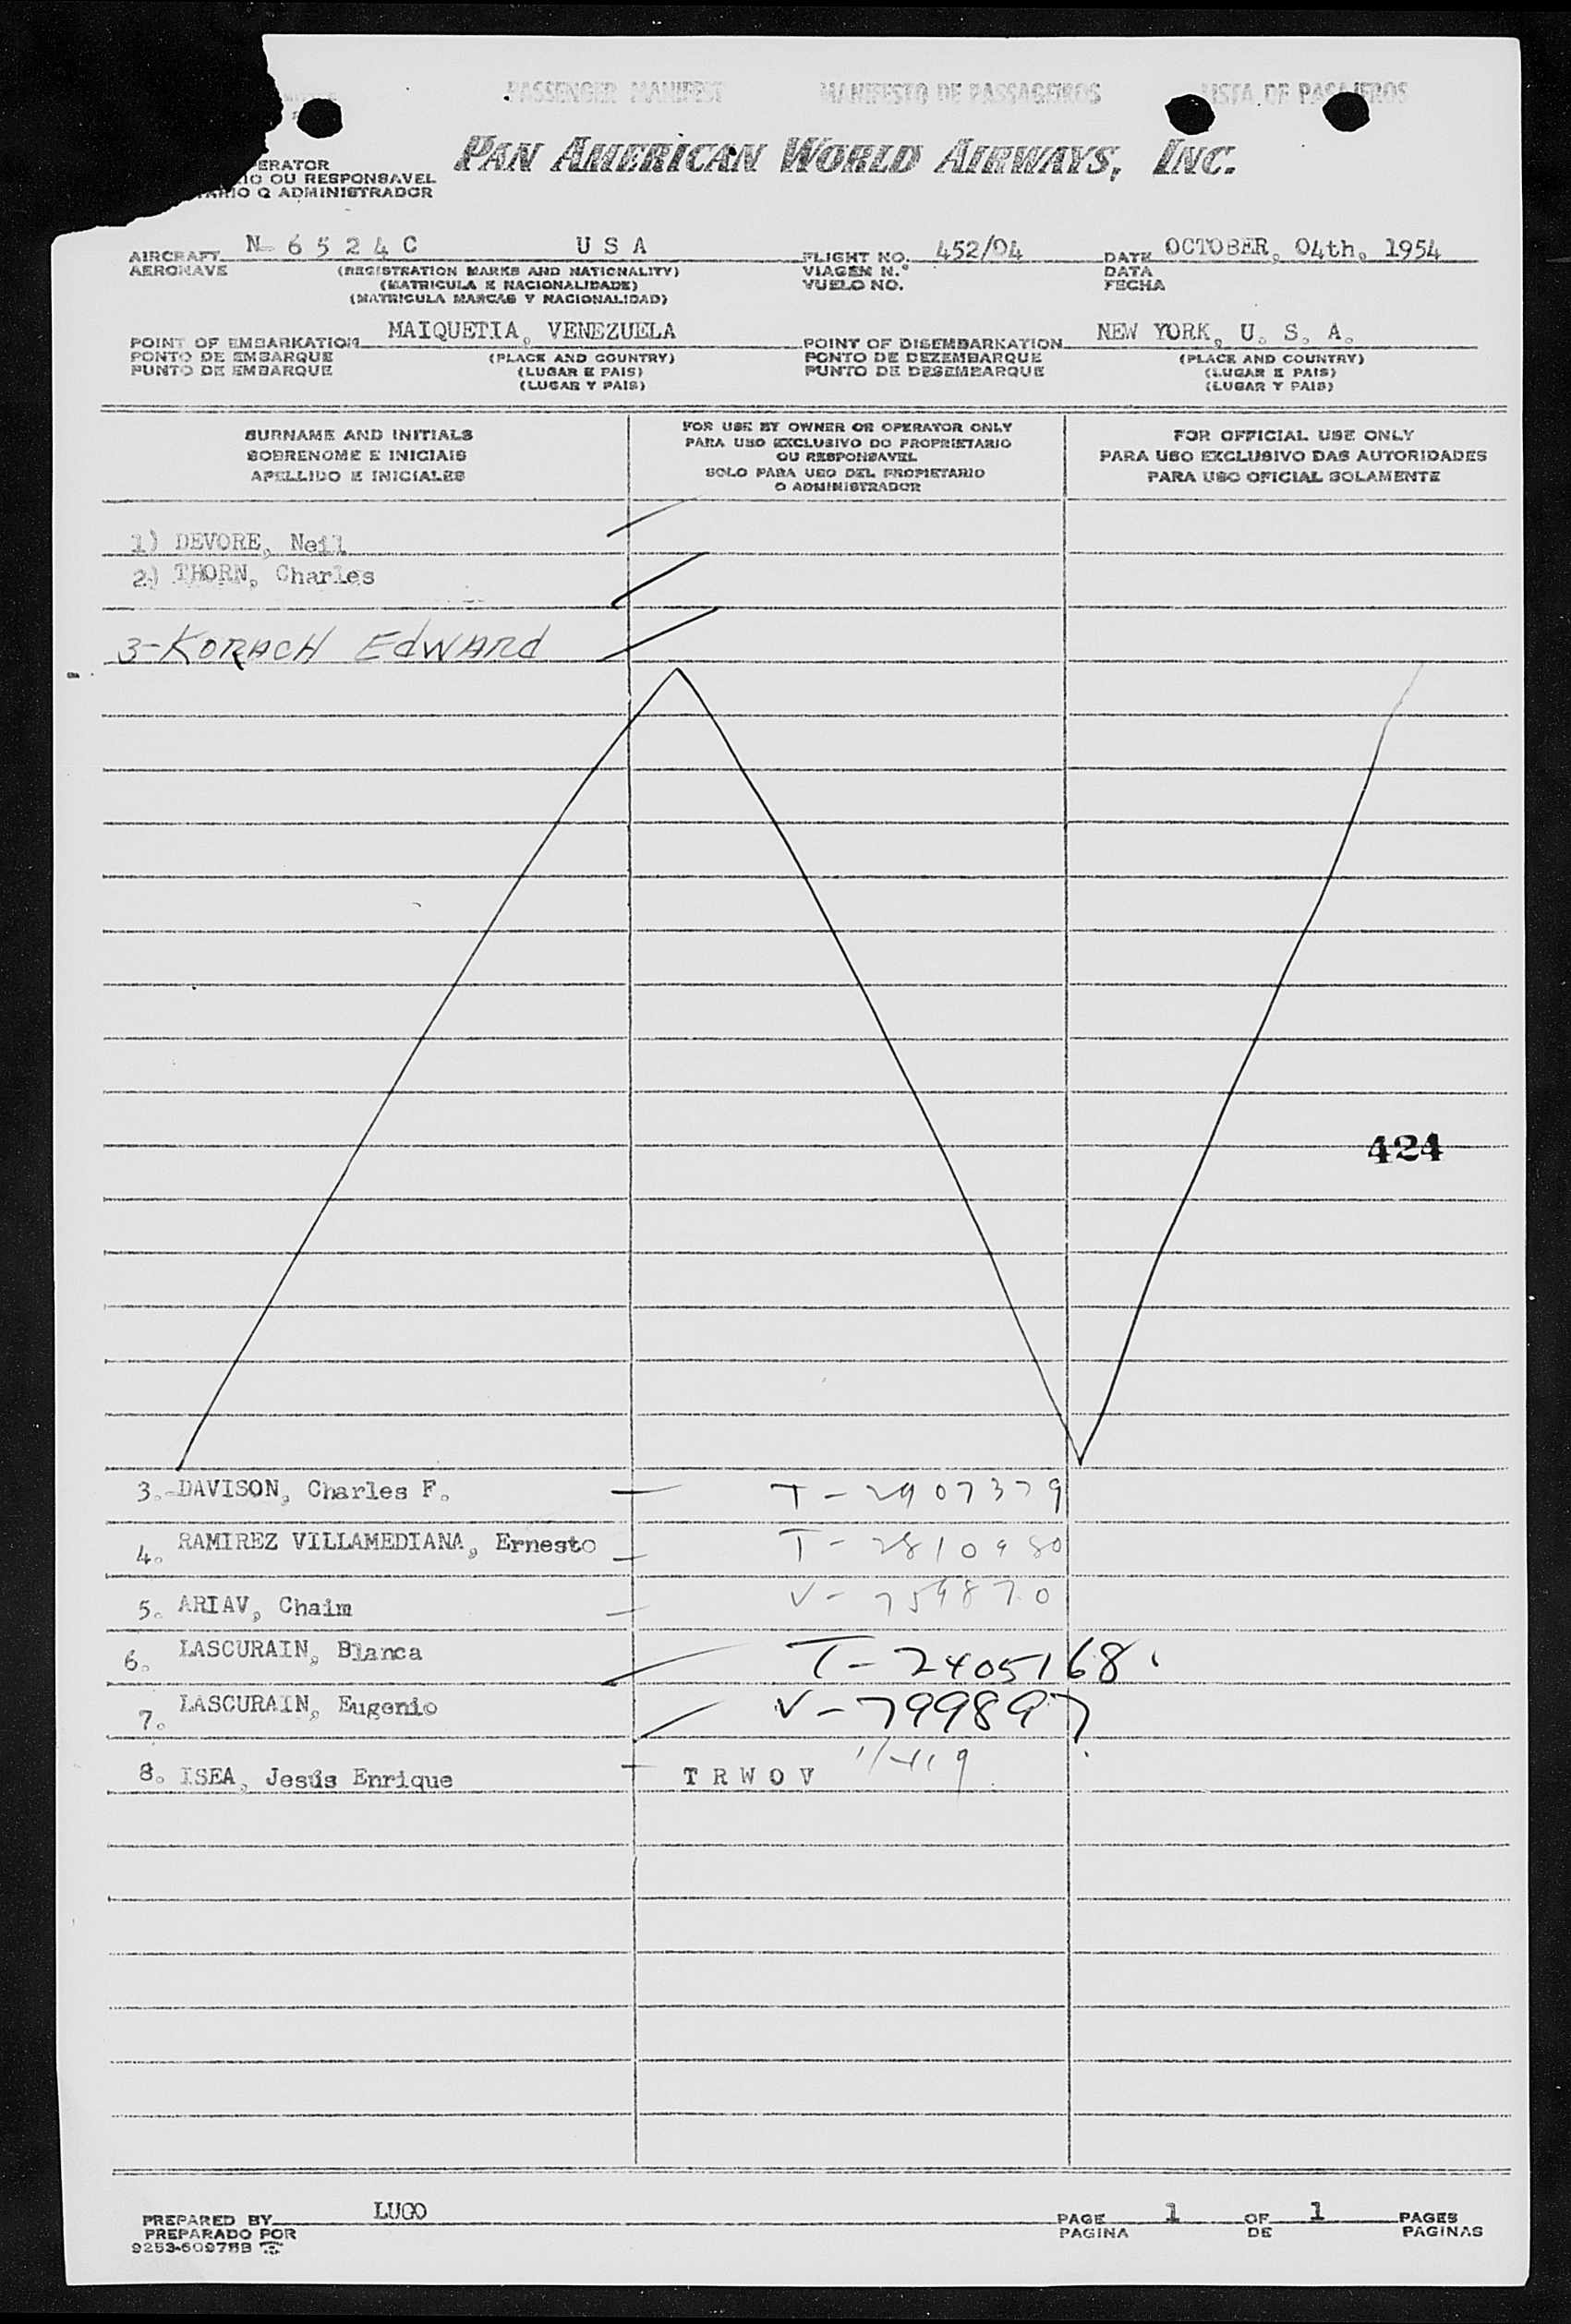 PASSENGER MANIFEST MANIFESTO DE PASSAGEIROS LISTA DE PASAJEROS
PAN AMERICAN WORLD AIRWAYS, INC.
ERATOR
IO OU RESPONSAVEL
TARIO O ADMINISTRADOR
AIRCRAFT N 6 5 2 4 C U S A FLIGHT NO. 452/04 DATE OCTOBER, 04th, 1954
AERONAVE (REGISTRATION MARKS AND NATIONALITY) VIAGEM N.º DATA
(MATRICULA E NACIONALIDADE) VUELO NO. FECHA
(MATRICULA MARCAS Y NACIONALIDAD)
POINT OF EMBARKATION MAIQUETIA, VENEZUELA POINT OF DISEMBARKATION NEW YORK, U. S. A.
PONTO DE EMBARQUE (PLACE AND COUNTRY) PONTO DE DEZEMBARQUE (PLACE AND COUNTRY)
PUNTO DE EMBARQUE (LUGAR E PAIS) PUNTO DE DESEMBARQUE (LUGAR E PAIS)
(LUGAR Y PAIS) (LUGAR Y PAIS)
SURNAME AND INITIALS
SOBRENOME E INICIAIS
APELLIDO E INICIALES
FOR USE BY OWNER OR OPERATOR ONLY
PARA USO EXCLUSIVO DO PROPRIETARIO
OU RESPONSAVEL
SOLO PARA USO DEL PROPIETARIO
O ADMINISTRADOR
FOR OFFICIAL USE ONLY
PARA USO EXCLUSIVO DAS AUTORIDADES
PARA USO OFICIAL SOLAMENTE
1) DEVORE, Neil
2) THORN, Charles
3-KORACH EdWARd
424
3.-DAVISON, Charles F. T-2907379
4. RAMIREZ VILLAMEDIANA, Ernesto T-2810980
5. ARIAV, Chaim V-759870
6. LASCURAIN, Blanca T-2405168
7. LASCURAIN, Eugenio V-799897
8. ISEA, Jesús Enrique T R W O V
PREPARED BY LUGO PAGE 1 OF 1 PAGES
PREPARADO POR PAGINA DE PAGINAS
9253-609758B